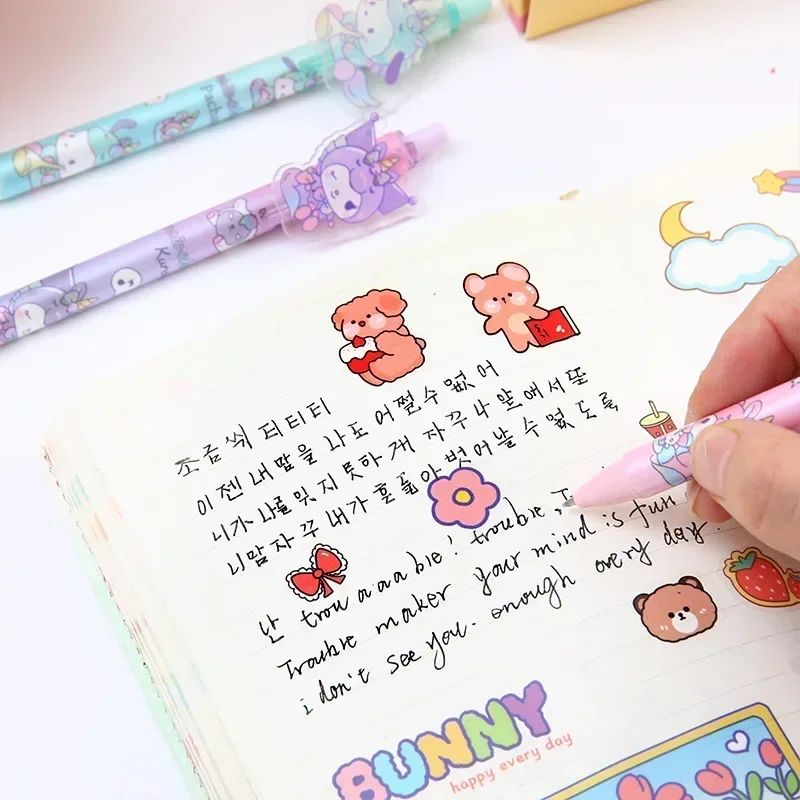 조금씩 티티티
이젠 내맘을 나도 어쩔수 없어
니가 나를 잊지 못하게 자꾸 나 앞에서 또
니맘 자꾸 내가 흔들아 벗어날 수 없도록
난 trou a.a.a ble! trouble
Trouble maker your mind is fun
i don't see you. enough every day.
BUNNY
happy every day